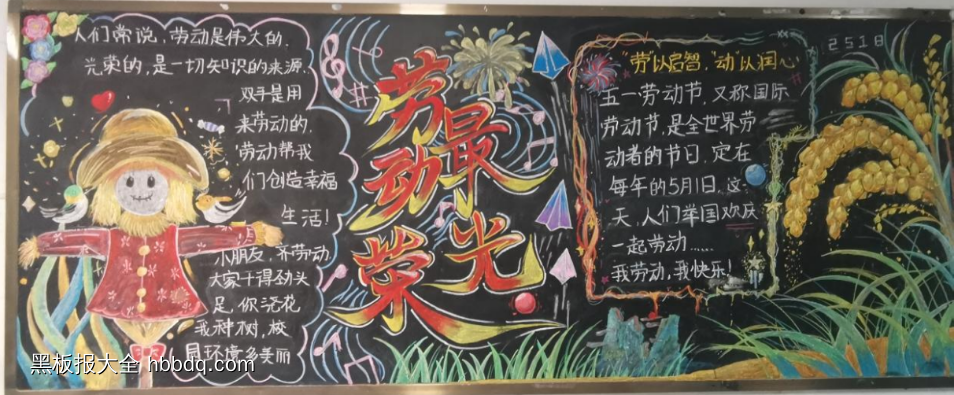 人们常说，劳动是伟大的，
光荣的，是一切知识的来源.
双手是用
来劳动的，
劳动帮我
们创造幸福
生活！
小朋友，齐劳动
大家干得劲头
足，你浇花
我种树，校
园环境多美丽
劳动最荣光
"劳"以启智，"动"以润心
五一劳动节，又称国际
劳动节，是全世界劳
动者的节日，定在
每年的5月1日，这
天，人们举国欢庆
一起劳动……
我劳动，我快乐！
2518
黑板报大全 hbbdq.com